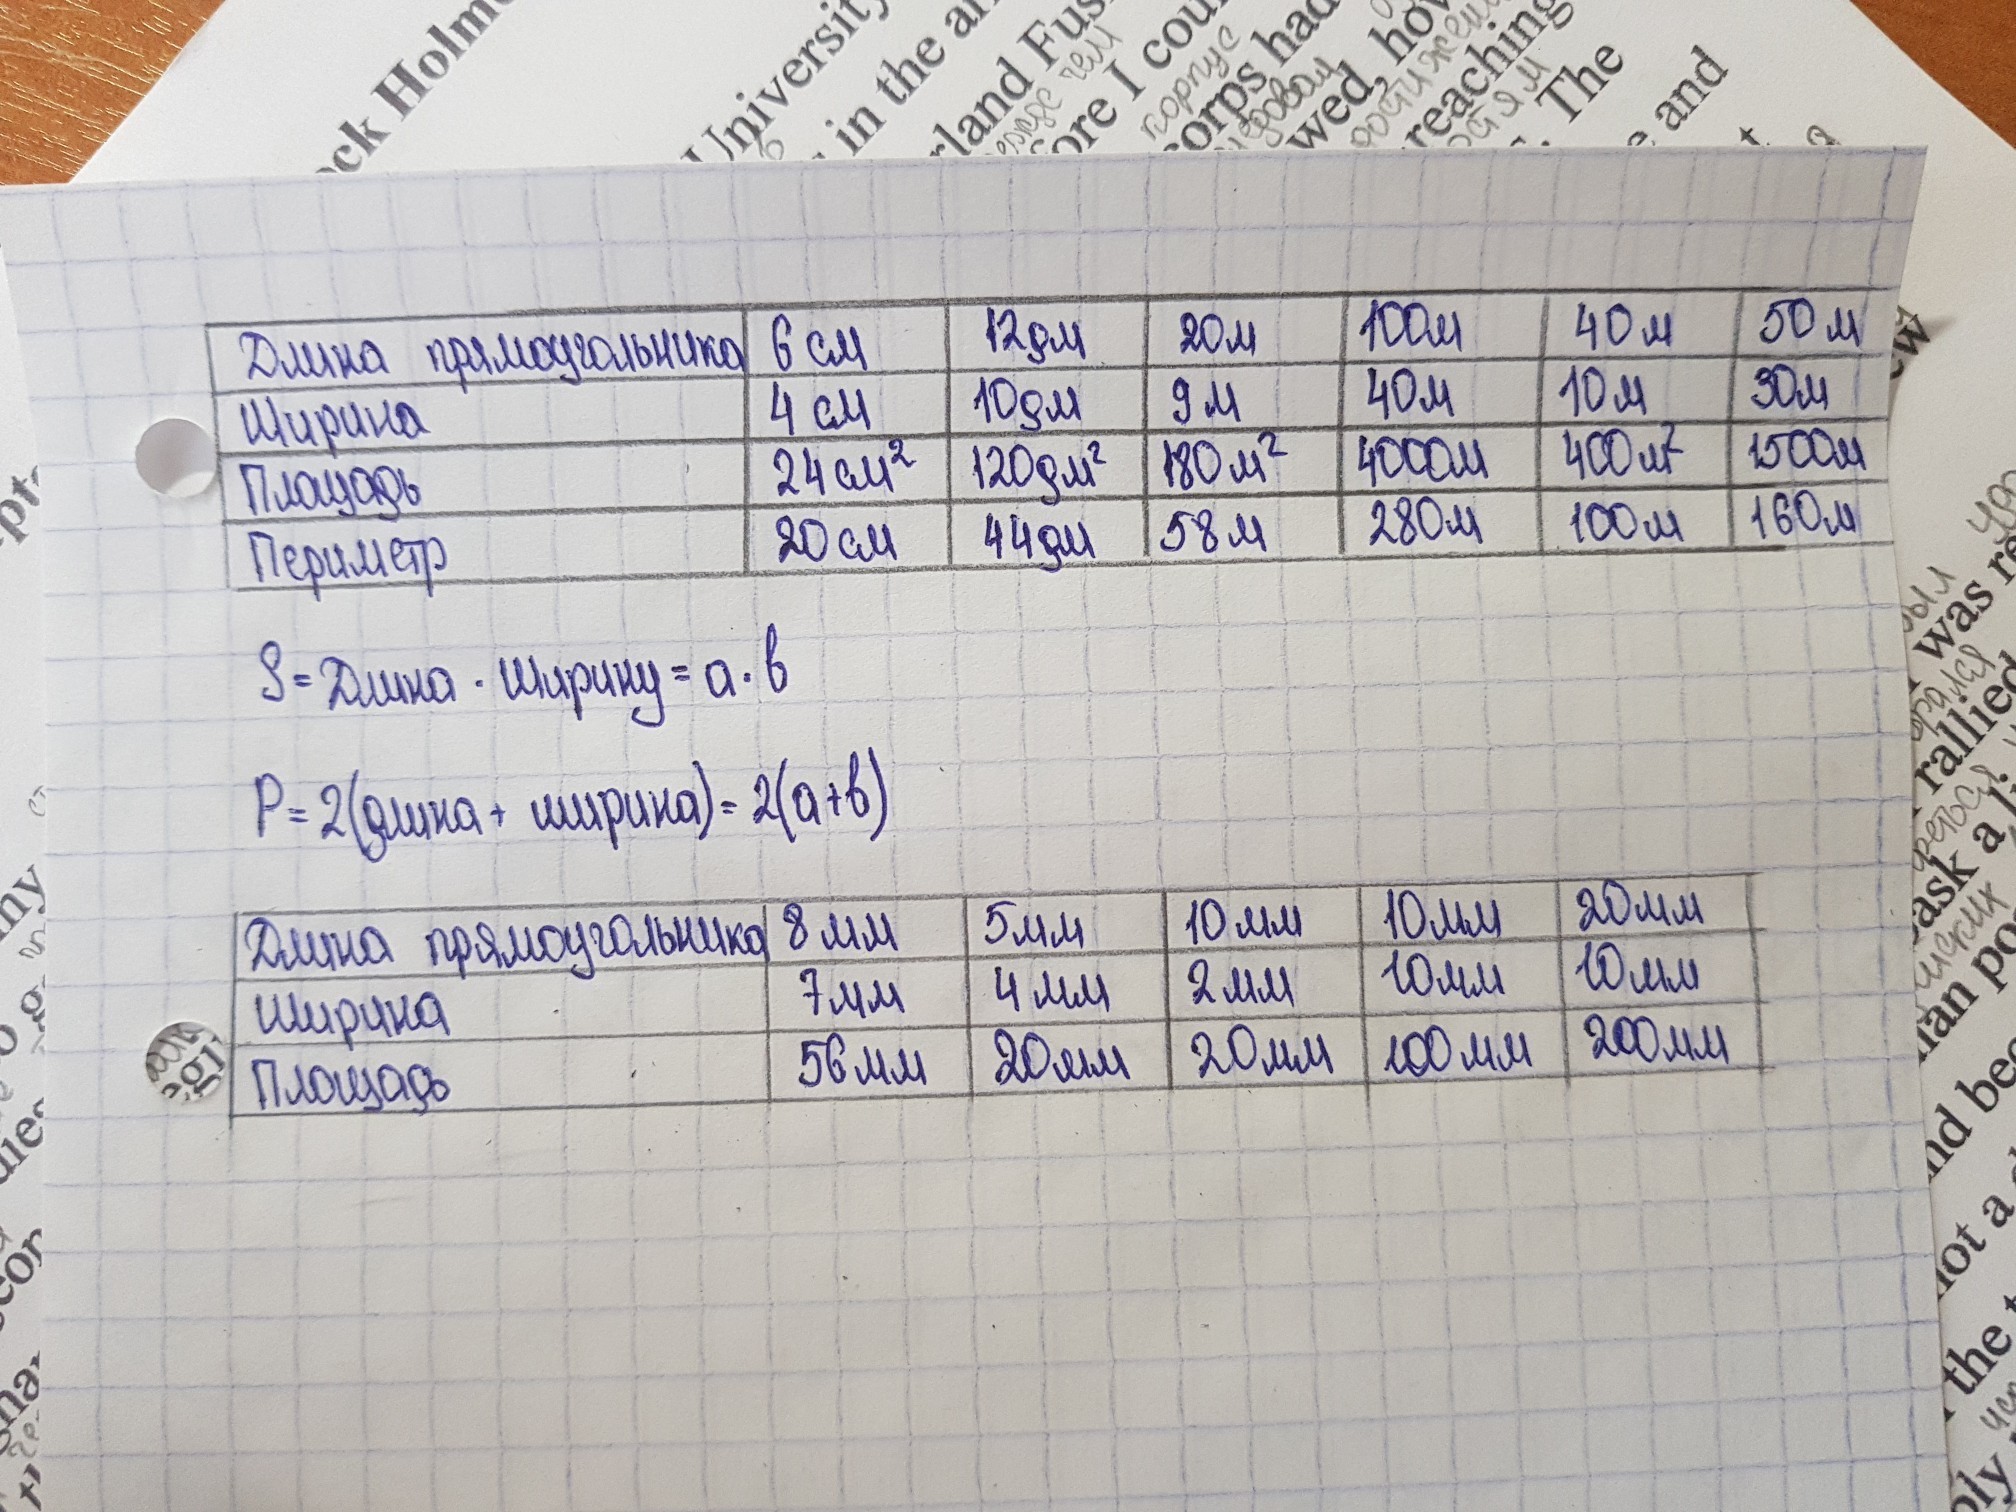 ck Holm
University
in the a
rland Fus
ore I cou
корпус
corps had
wed, how
reaching
The
e and
Длина прямоугольника 6 см 12дм 20м 100м 40м 50м
Ширина 4 см 10дм 9м 40м 10м 30м
Площадь 24 см² 120дм² 180м² 4000м 400м² 1500м
Периметр 20см 44дм 58м 280м 100м 160м
S = Длина · ширину = a · в
P = 2(длина + ширина) = 2(a+в)
Длина прямоугольника 8мм 5мм 10мм 10мм 20мм
Ширина 7мм 4мм 2мм 10мм 10мм
Площадь 56мм 20мм 20мм 100мм 200мм
was re
rallied
ask a
man po
nd bec
not a d
the t